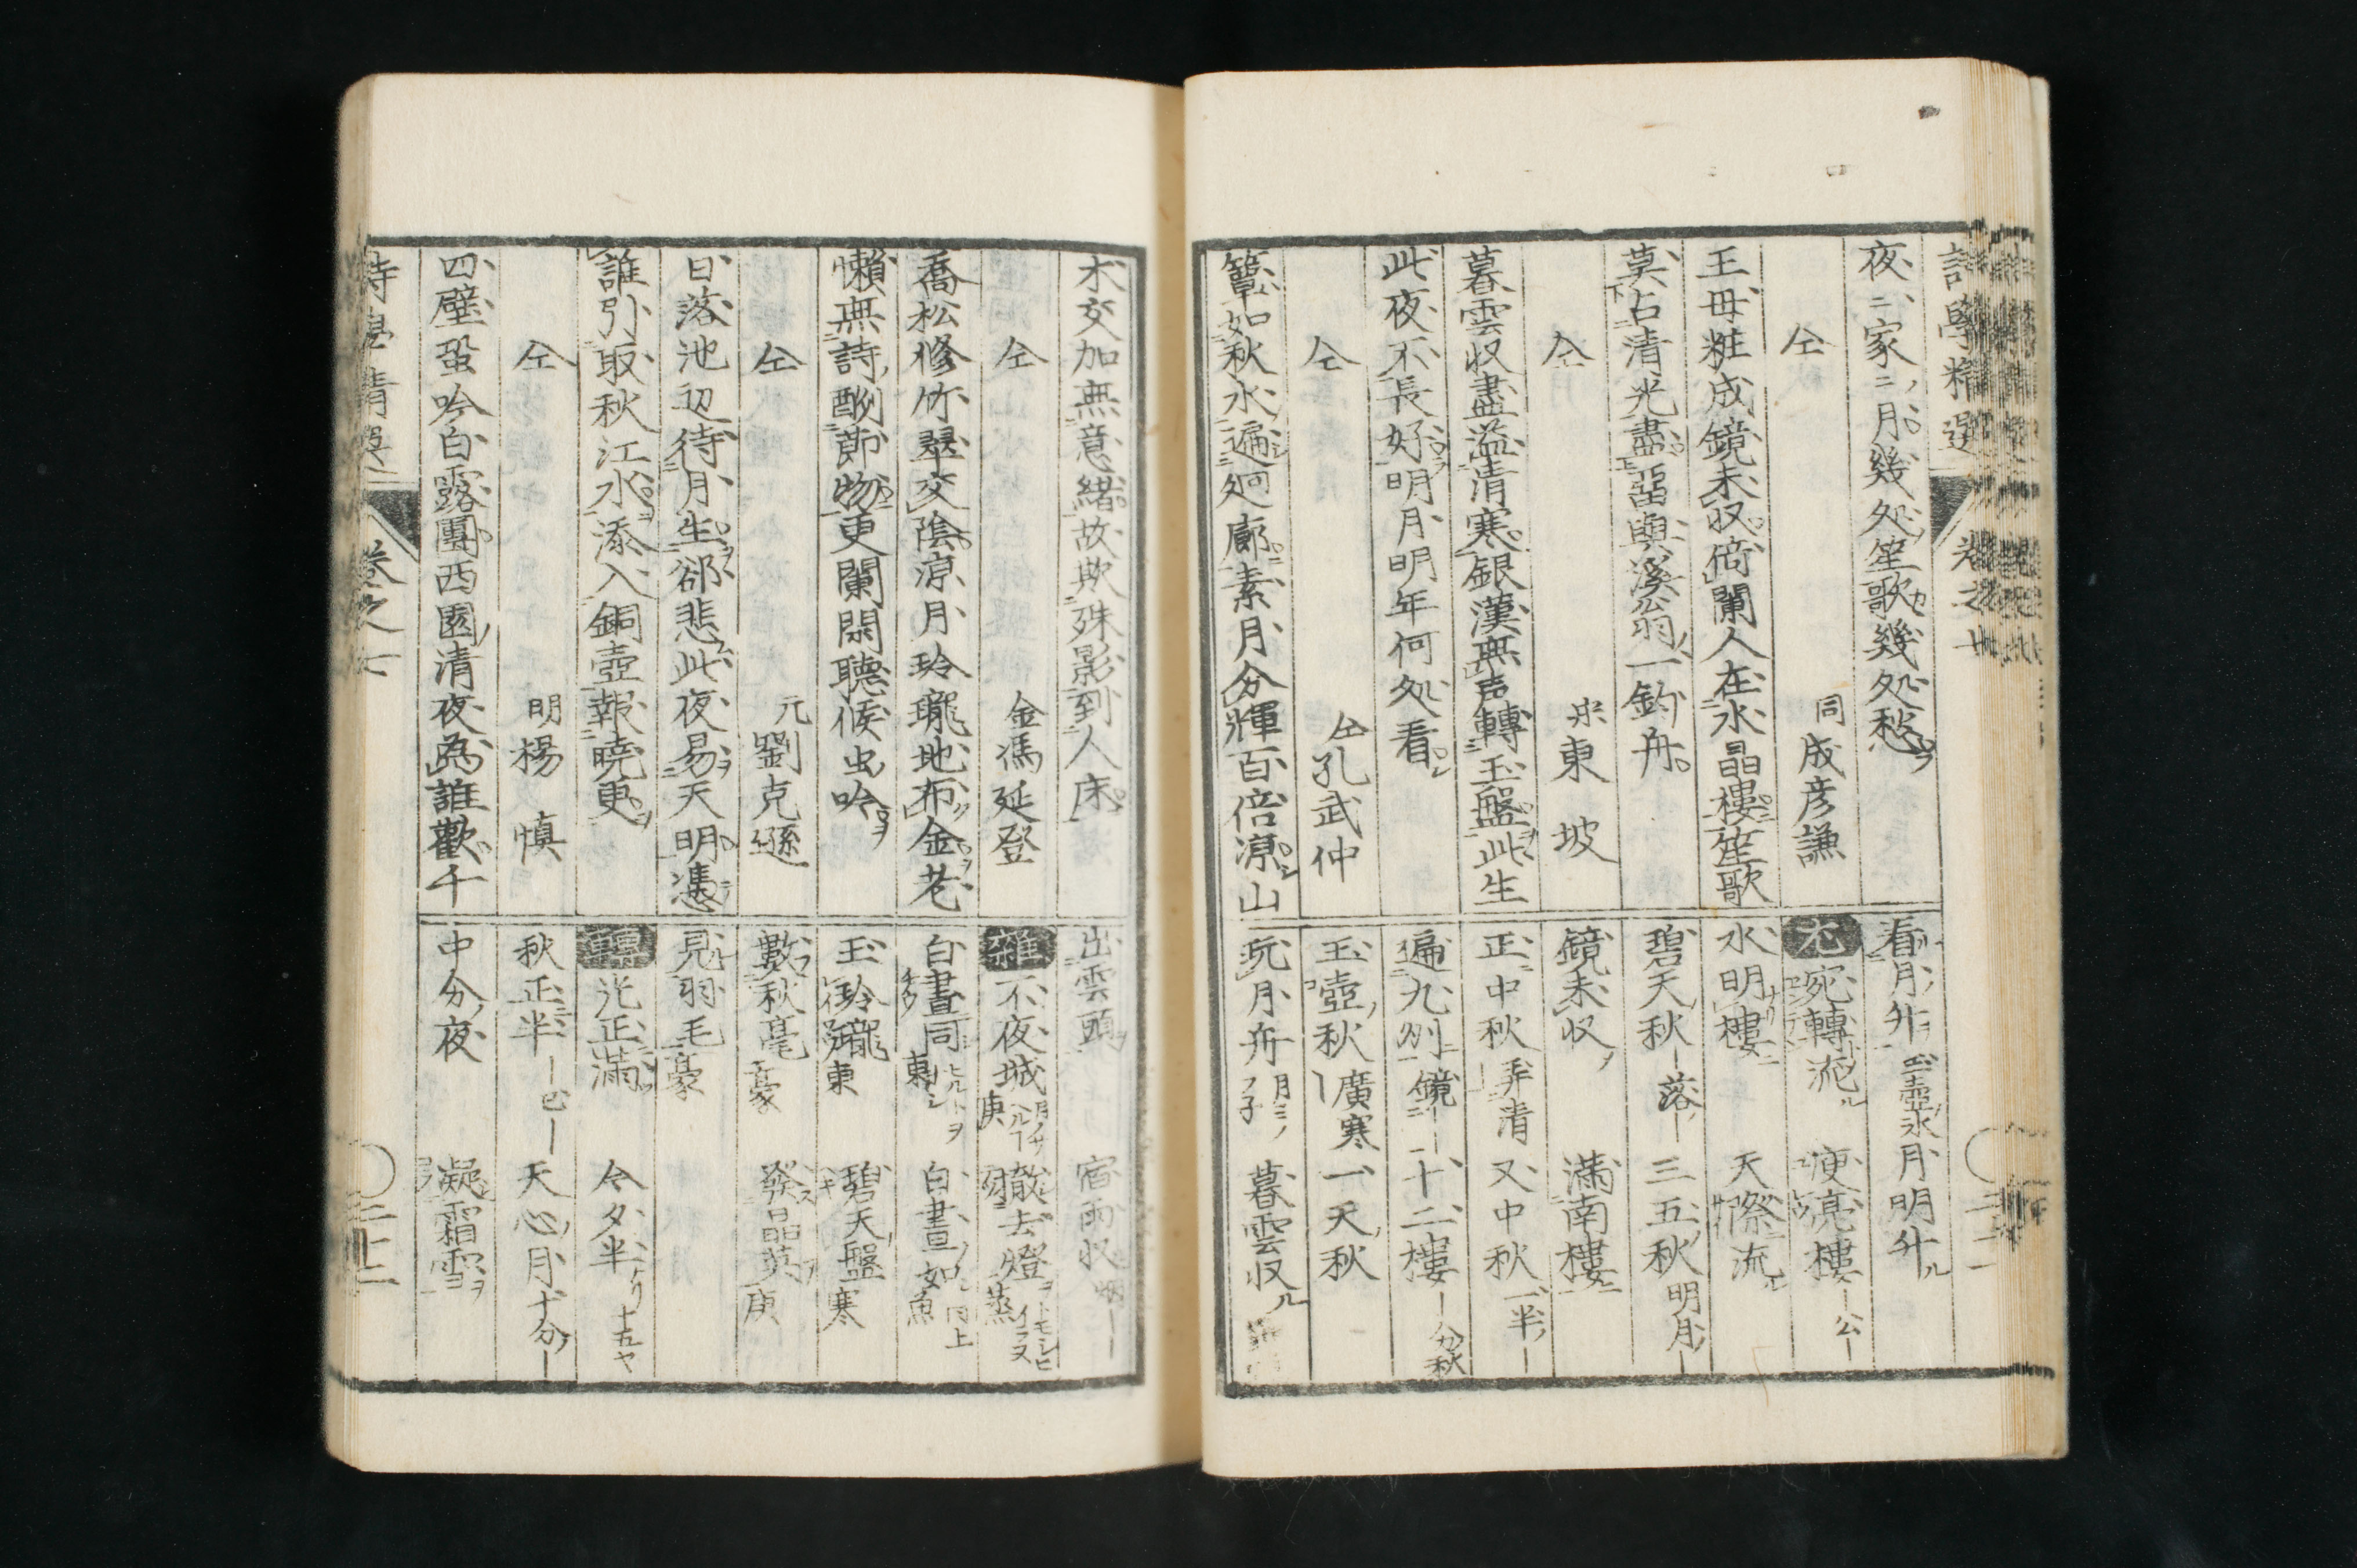 詩學精選 卷之七
夜〻家〻月幾処笙歌幾処愁
仝 同成彦謙
王母粧成鏡未収倚闌人在水晶樓笙歌
莫占清光盡留與溪翁一釣舟
仝 宋東坡
暮雲収盡溢清寒銀漢無声轉玉盤此生
此夜不長好明月明年何処看
仝 仝孔武仲
簟如秋水遍廻廊素月分輝百倍凉山
看月舟 玉壺氷 月明舟
尤 宛轉流 庾亮樓 ―公―
水明樓 天際流
碧天秋 ―落― 三五秋 明月―
鏡未収 満南樓
正中秋 弄清 又中秋 一半―
遍九州 鏡― 十二樓 ―分秋
玉壺秋 廣寒 一天秋
玩月舟 暮雲収
木交加無意緒故欺殊影到人床
仝 金馮延登
喬松修竹翠交陰凉月玲瓏地布金老
懶無詩酬節物更闌閑聴候虫吟
仝 元劉克遜
日落池辺待月生郤悲此夜易天明憑
誰引取秋江水添入銅壺報曉更
仝 明楊慎
四壁蛩吟白露團西園清夜為誰歡千
出雲頭 宿雨収
雜 不夜城 庚 撤去燈 蒸
白晝同 東 白晝如 魚
玉玲瓏 東 碧天盤 寒
數秋毫 豪 發晶英 庚
見羽毛 豪
轉 光正満 今夕半
秋正半 天心月 十分―
中分夜 凝霜雪
卷之七 二十二